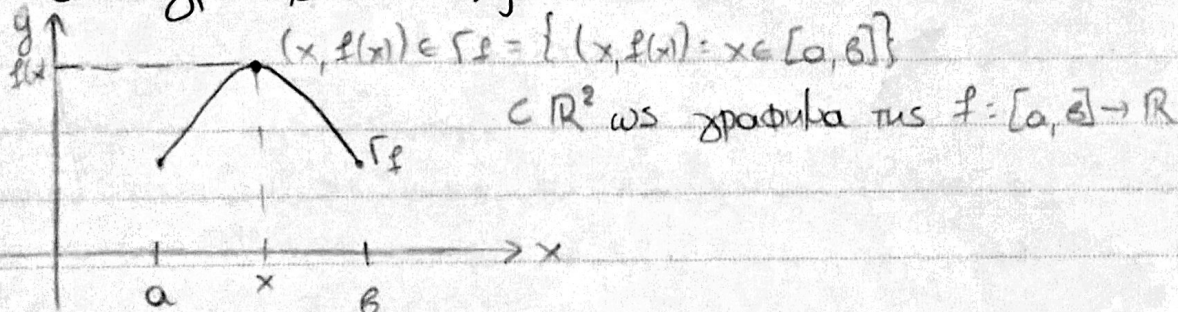 y
(x, f(x)) ∈ Γf = { (x, f(x)) : x ∈ [a, β]}
f(x)
⊂ ℝ² ως γραφικα της f : [a, β] → ℝ
Γf
x
a x β